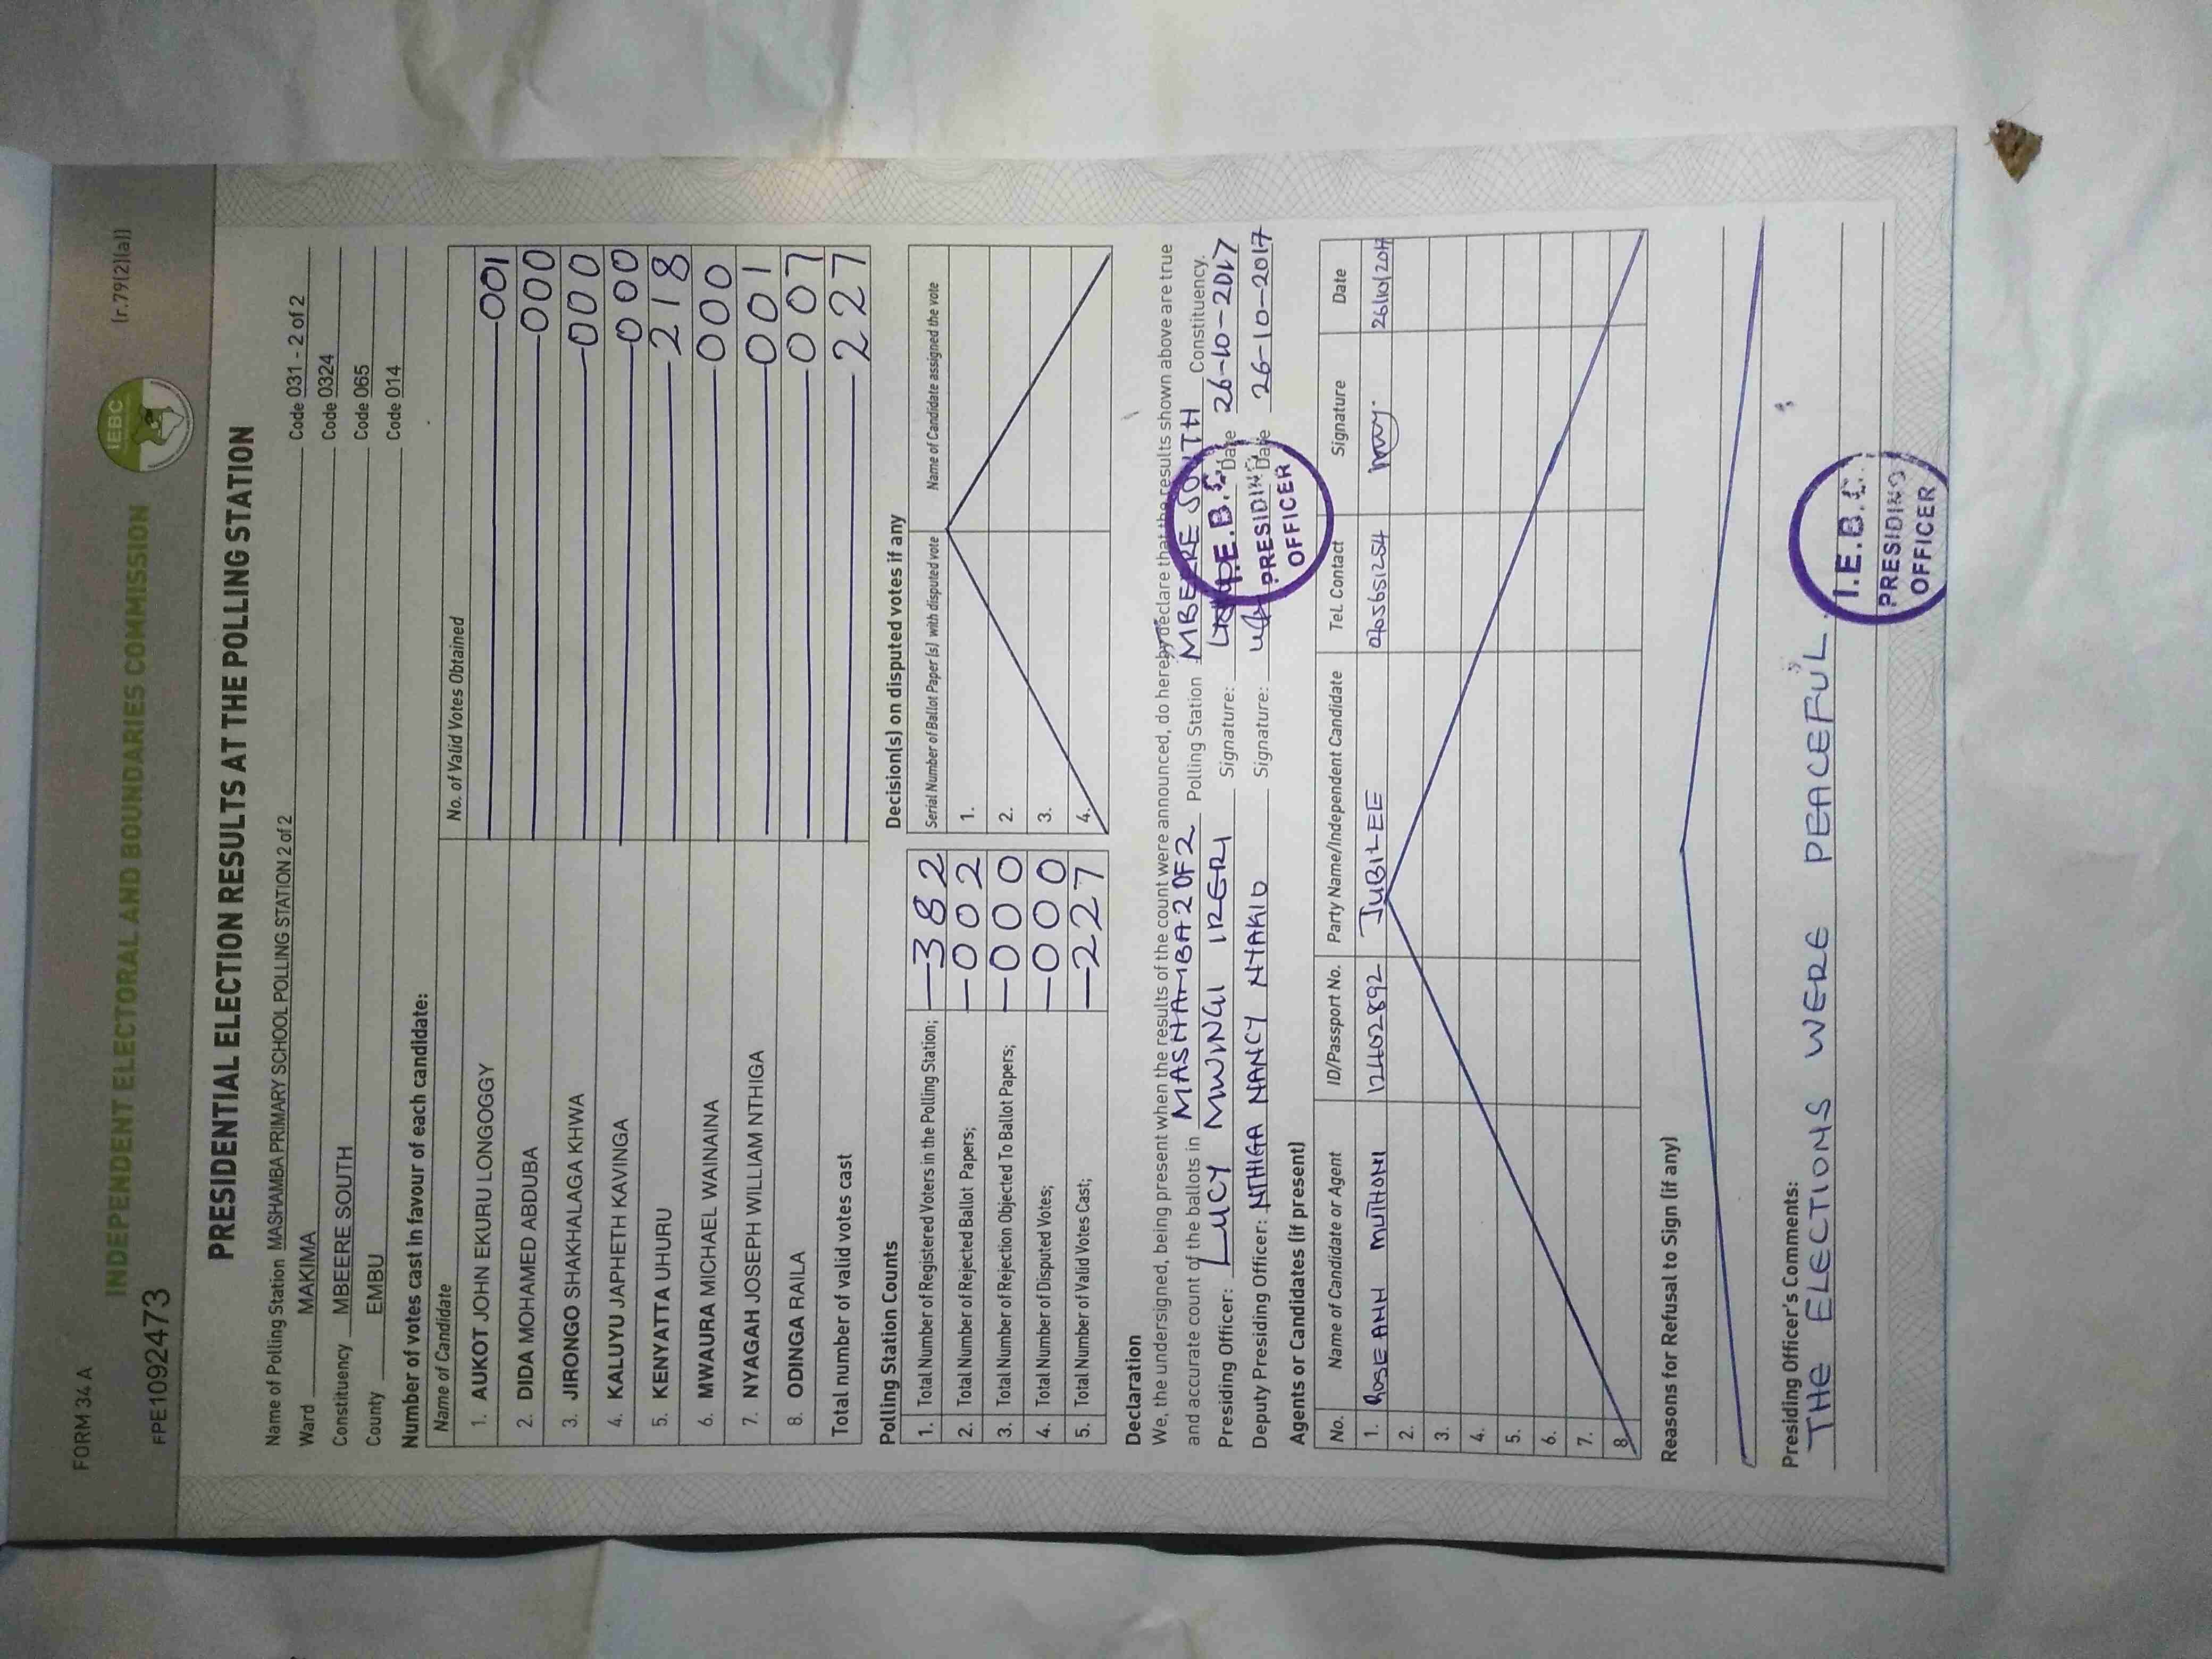 FORM 34 A
(r.79(2)(a))
INDEPENDENT ELECTORAL AND BOUNDARIES COMMISSION
IEBC
FPE1092473
PRESIDENTIAL ELECTION RESULTS AT THE POLLING STATION
Name of Polling Station MASHAMBA PRIMARY SCHOOL POLLING STATION 2 of 2 Code 031 - 2 of 2
Ward MAKIMA Code 0324
Constituency MBEERE SOUTH Code 065
County EMBU Code 014
Number of votes cast in favour of each candidate:
Name of Candidate No. of Valid Votes Obtained
1. AUKOT JOHN EKURU LONGOGGY 001
2. DIDA MOHAMED ABDUBA 000
3. JIRONGO SHAKHALAGA KHWA 000
4. KALUYU JAPHETH KAVINGA 000
5. KENYATTA UHURU 218
6. MWAURA MICHAEL WAINAINA 000
7. NYAGAH JOSEPH WILLIAM NTHIGA 001
8. ODINGA RAILA 007
Total number of valid votes cast 227
Polling Station Counts
1. Total Number of Registered Voters in the Polling Station; 382
2. Total Number of Rejected Ballot Papers; 002
3. Total Number of Rejection Objected To Ballot Papers; 000
4. Total Number of Disputed Votes; 000
5. Total Number of Valid Votes Cast; 227
Decision(s) on disputed votes if any
Serial Number of Ballot Paper (s) with disputed vote Name of Candidate assigned the vote
1.
2.
3.
4.
Declaration
We, the undersigned, being present when the results of the count were announced, do hereby declare that the results shown above are true
and accurate count of the ballots in MASHAMBA 2 OF 2 Polling Station MBEERE SOUTH Constituency.
Presiding Officer: LUCY MWINGI IRERI Signature: Date 26-10-2017
Deputy Presiding Officer: NTHIGA NANCY NTAKIO Signature: Date 26-10-2017
I.E.B.C.
PRESIDING
OFFICER
Agents or Candidates (if present)
No. Name of Candidate or Agent ID/Passport No. Party Name/Independent Candidate Tel. Contact Signature Date
1. ROSE ANN MUTHONI JUBILEE 26/10/2017
2.
3.
4.
5.
6.
7.
8.
Reasons for Refusal to Sign (if any)
Presiding Officer's Comments:
THE ELECTIONS WERE PEACEFUL.
I.E.B.C.
PRESIDING
OFFICER